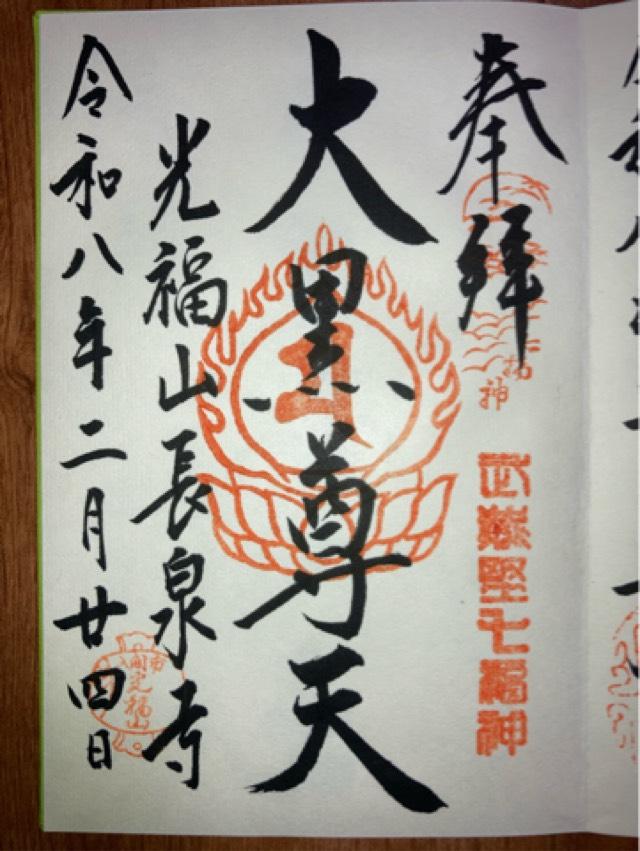 奉拝
武蔵野七福神
大黒尊天
光福山長泉寺
令和八年二月廿四日
光福山